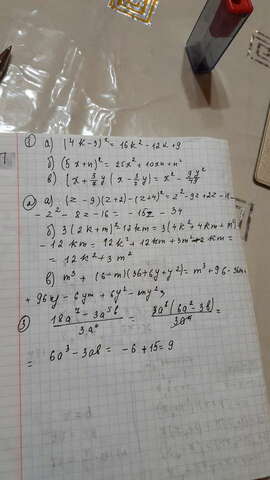 ① а) (4k-3)² = 16k² - 12k + 9
б) (5x+n)² = 25x² + 10xn + n²
в) (x + 3/7 y)(x - 3/7 y) = x² - 9y²/49
② а) (z-9)(z+2) - (z+4)² = z² - 9z + 2z - 18 -
- z² - 8z - 16 = -15z - 34
б) 3(2k+m)² - 12km = 3(4k² + 4km + m²)
- 12km = 12k² + 12km + 3m² - 12km =
= 12k² + 3m²
в) m³ + (6-m)(36+6y+y²) = m³ +
+ 36y - 6ym + 6y² - my²
③ 18a⁷ - 3a⁵b / 3a⁴ =
= 6a³ - 3ab = -6 + 15 = 9